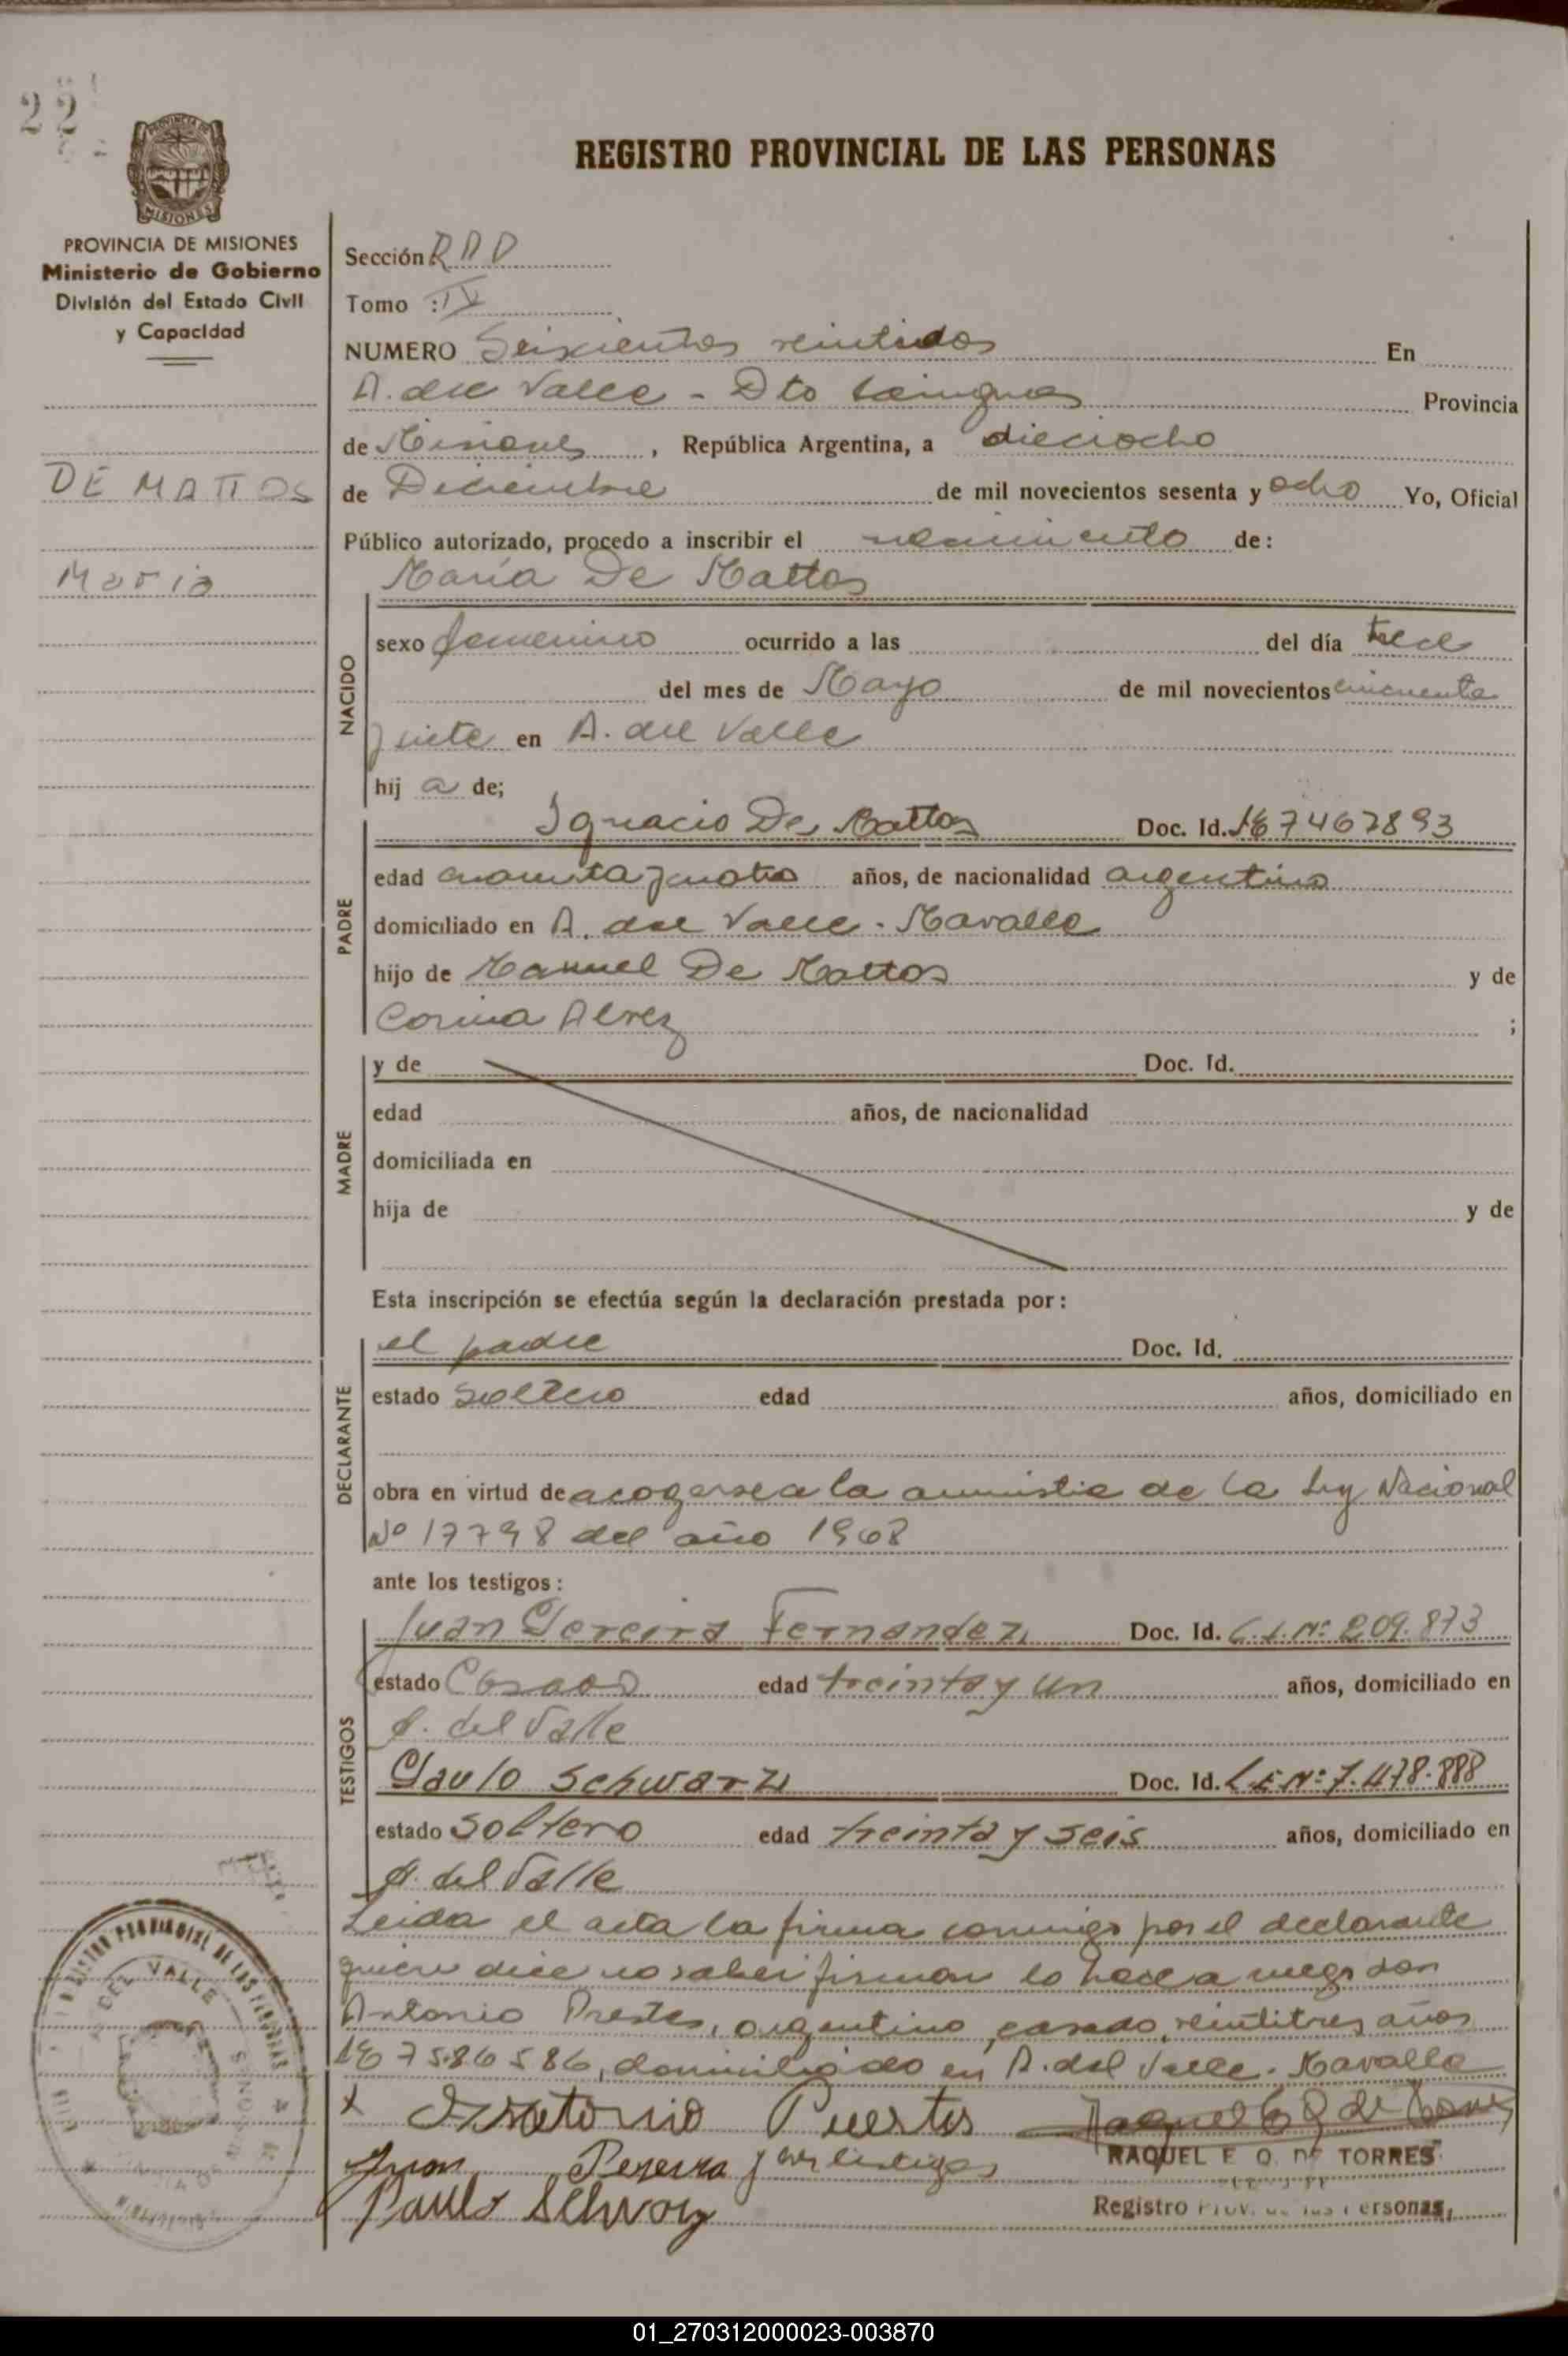 22
REGISTRO PROVINCIAL DE LAS PERSONAS
MISIONES
PROVINCIA DE MISIONES
Ministerio de Gobierno
División del Estado Civil
y Capacidad
DE MATTOS
Maria
Sección
Tomo : IV
NUMERO Seiscientos veintidos En
A. del Valle - Dto Cainguas Provincia
de Misiones, República Argentina, a dieciocho
de Diciembre de mil novecientos sesenta y ocho Yo, Oficial
Público autorizado, procedo a inscribir el nacimiento de:
María De Mattos
NACIDO
sexo femenino ocurrido a las del día trece
del mes de Mayo de mil novecientos cincuenta
y siete en A. del Valle
hij a de;
PADRE
Ignacio De Mattos Doc. Id. LE 7467893
edad cuarenta y cuatro años, de nacionalidad argentino
domiciliado en A. del Valle - Mavalle
hijo de Manuel De Mattos y de
Corina Alvez ;
MADRE
y de Doc. Id.
edad años, de nacionalidad
domiciliada en
hija de y de
Esta inscripción se efectúa según la declaración prestada por:
DECLARANTE
el padre Doc. Id.
estado soltero edad años, domiciliado en
obra en virtud de acogerse a la amnistia de la Ley Nacional
Nº 17798 del año 1968
ante los testigos:
TESTIGOS
Juan Pereira Fernandez Doc. Id. C.I. Nº 209.873
estado Casado edad treinta y un años, domiciliado en
A. del Valle
Paulo Schwarz Doc. Id. L.E Nº 7.478.888
estado Soltero edad treinta y seis años, domiciliado en
A. del Valle
Leida el acta la firma conmigo por el declarante
quien dice no saber firmar lo hace a ruego don
Antonio Prestes, argentino, casado, veintitres años
LE 7586586, domiciliado en A. del Valle - Mavalle
x Antonio Puertes
Juan Pereira y los testigos
Paulo Schwarz
RAQUEL E. O. DE TORRES
Registro Prov. de las Personas,
REGISTRO PROVINCIAL DE LAS PERSONAS
DEL VALLE
01_270312000023-003870